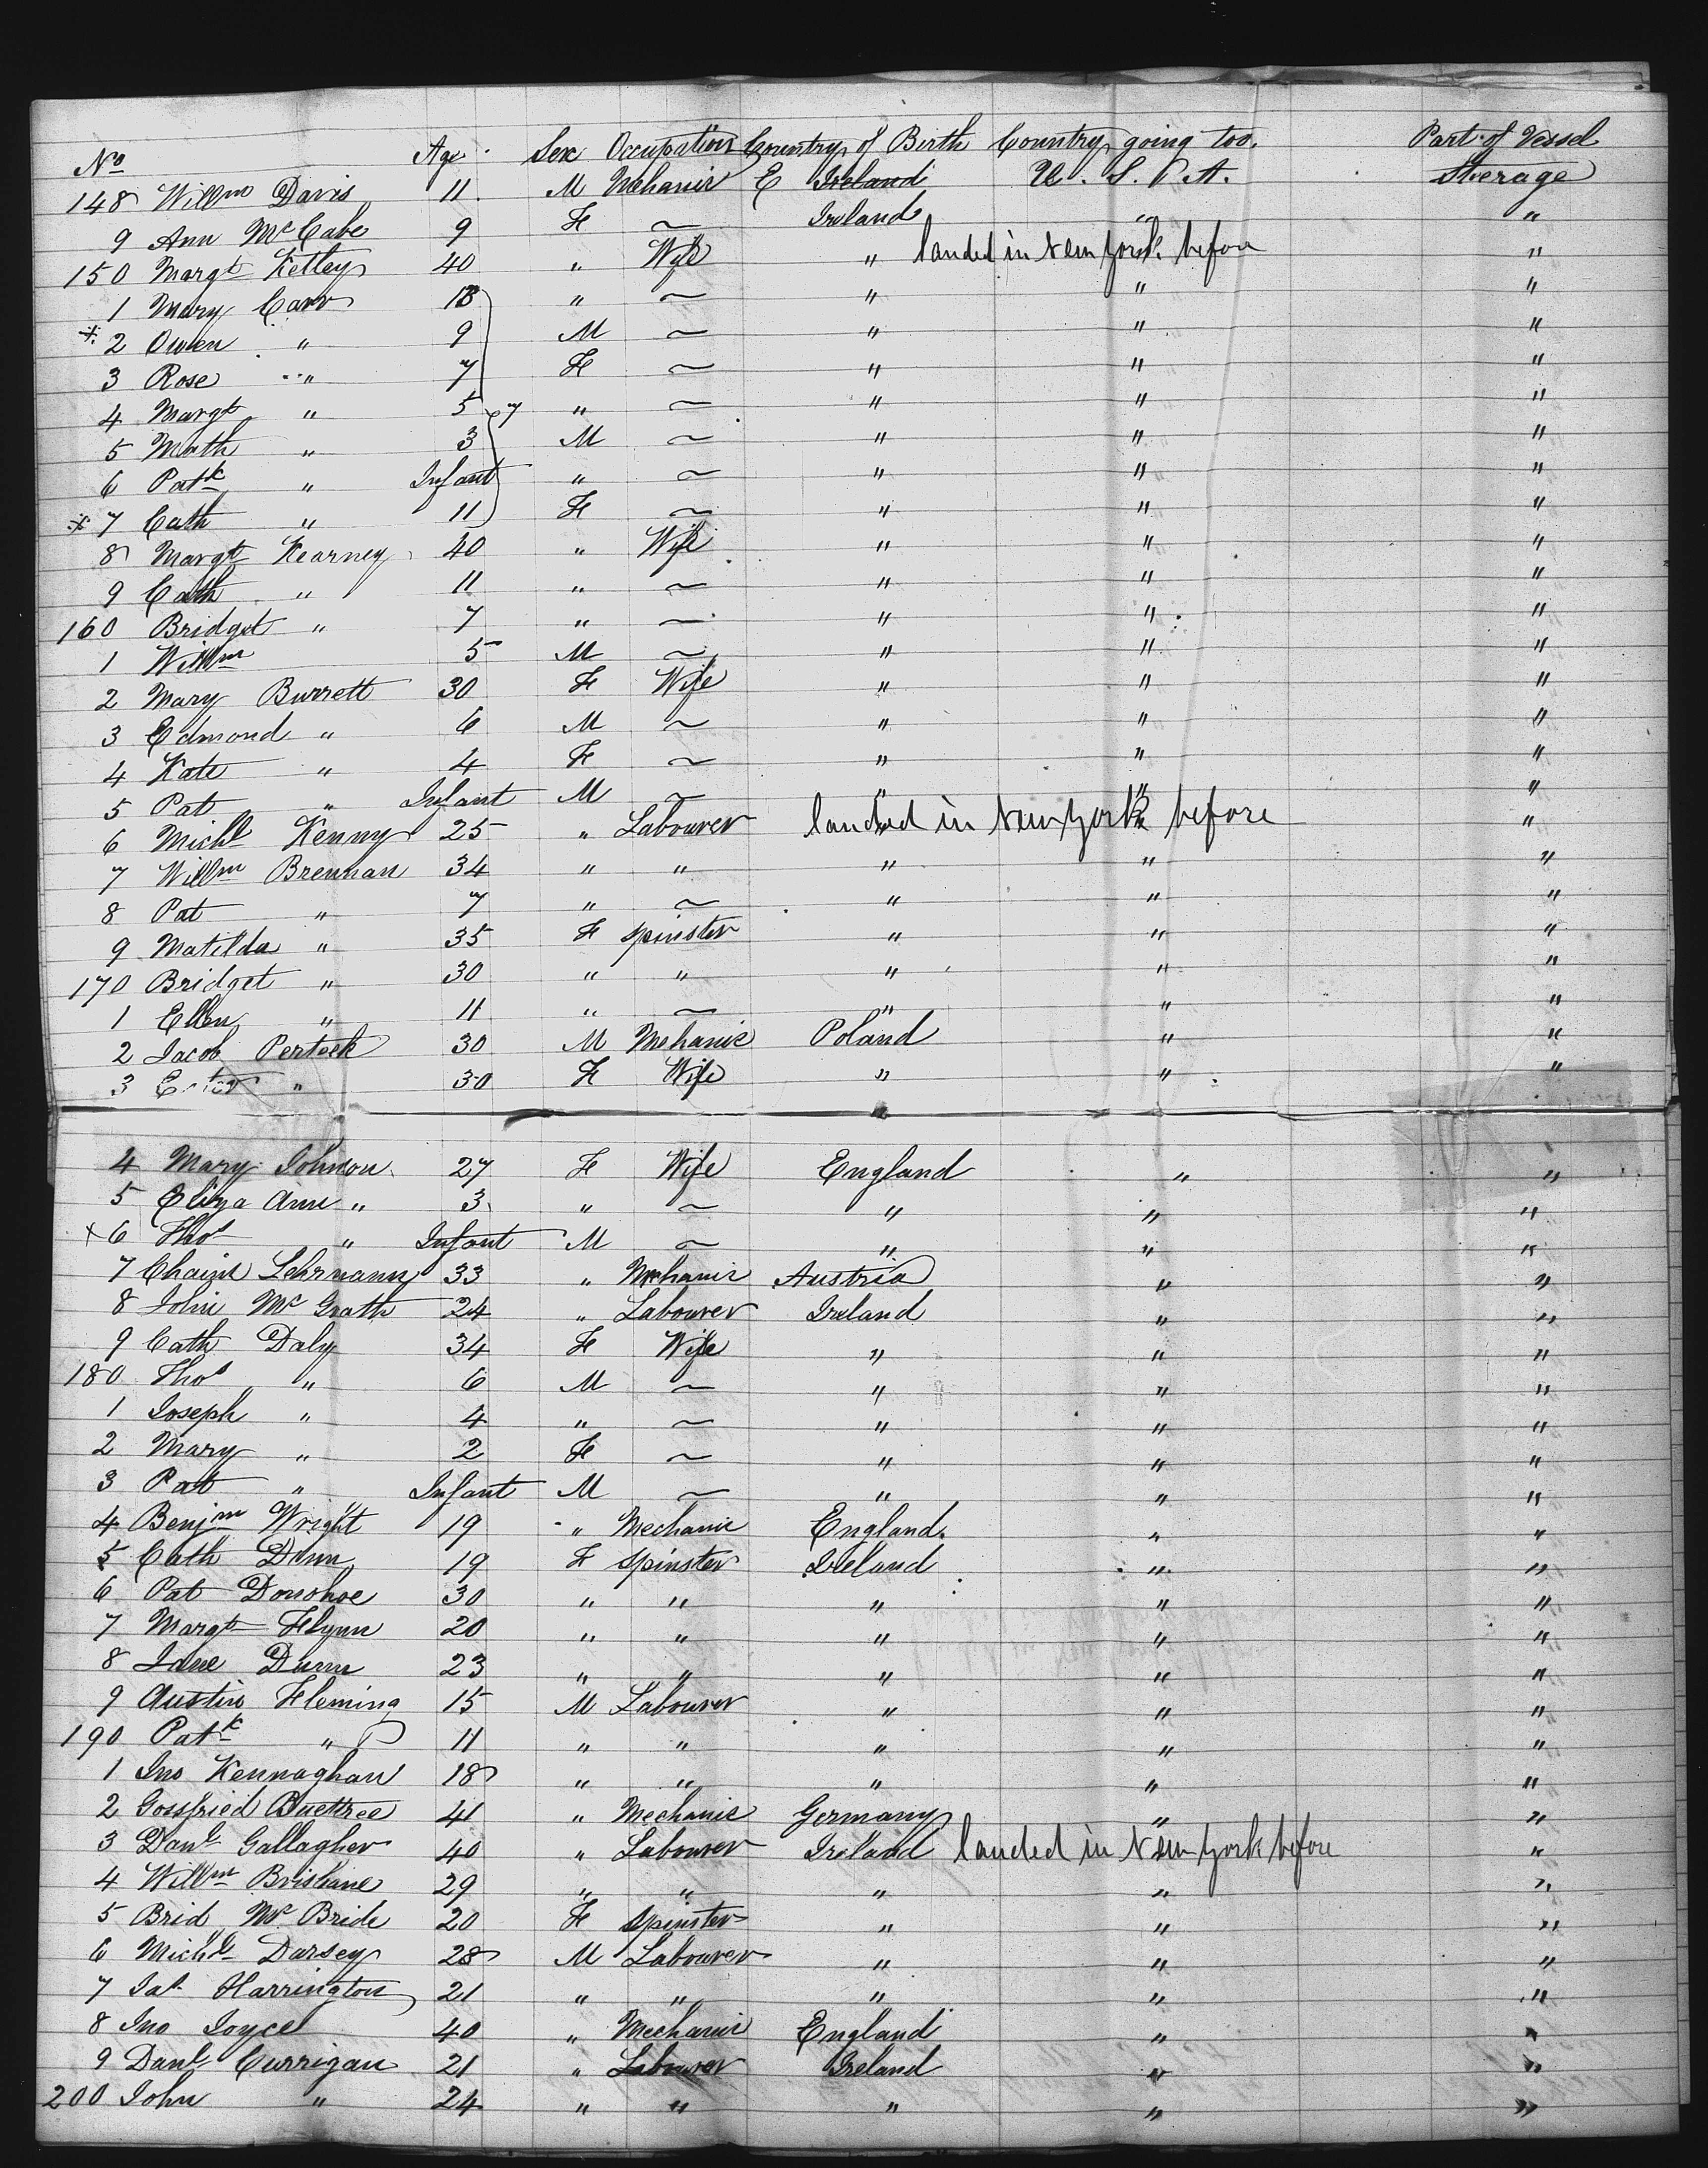 No Age Sex Occupation Country of Birth Country going too. Part of Vessel
148 Willm Davis 11 M Mehanic E Ireland U. S. A. Steerage
9 Ann McCabe 9 F ~ Ireland " "
150 Margt Kelley 40 " Wife " landed in New York before "
1 Mary Carr 13 " ~ " " "
* 2 Owen " 9 M ~ " " "
3 Rose " 7 F ~ " " "
4 Margt " 5 7 " ~ " " "
5 Math " 3 M ~ " " "
6 Patk " Infant " ~ " " "
* 7 Cath " 11 F ~ " " "
8 Margt Kearney 40 " Wife " " "
9 Cath " 11 " ~ " " "
160 Bridget " 7 " ~ " " "
1 Willm 5 M ~ " " "
2 Mary Burrett 30 F Wife " " "
3 Edmond " 6 M ~ " " "
4 Kate " 4 F ~ " " "
5 Pat " Infant M ~ " " "
6 Michl Kenny 25 " Labourer " landed in New York before "
7 Willm Brennan 34 " " " " "
8 Pat " 7 " ~ " " "
9 Matilda " 35 F Spinster " " "
170 Bridget " 30 " " " " "
1 Ellen " 11 " ~ " " "
2 Jacob Perteck 30 M Mehanic Poland " "
3 " 30 F Wife " " "
4 Mary Johnson 27 F Wife England " "
5 Eliza Ann " 3 " ~ " " "
x 6 Thos " Infant M ~ " " "
7 Chaim Lehrmann 33 " Mehanic Austria " "
8 John McGrath 24 " Labourer Ireland " "
9 Cath Daly 34 F Wife " " "
180 Thos " 6 M ~ " " "
1 Joseph " 4 " ~ " " "
2 Mary " 2 F ~ " " "
3 Pat " Infant M ~ " " "
4 Benjm Wright 19 " Mechanic England " "
5 Cath Dunn 19 F Spinster Ireland " "
6 Pat Donohoe 30 " " " " "
7 Margt Flynn 20 " " " " "
8 Jane Dunn 23 " " " " "
9 Austin Fleming 15 M Labourer " " "
190 Patk " 11 " " " " "
1 Jno Kennaghan 18 " " " " "
2 41 " Mechanic Germany " "
3 Danl Gallagher 40 " Labourer Ireland landed in New York before "
4 Willm Brisbane 29 " " " " "
5 Brid McBride 20 F Spinster " " "
6 Michl Darsey 28 M Labourer " " "
7 Jas Harrington 21 " " " " "
8 Jno Joyce 40 " Mechanic England " "
9 Danl Currigan 21 " Labourer Ireland " "
200 John " 24 " " " " "